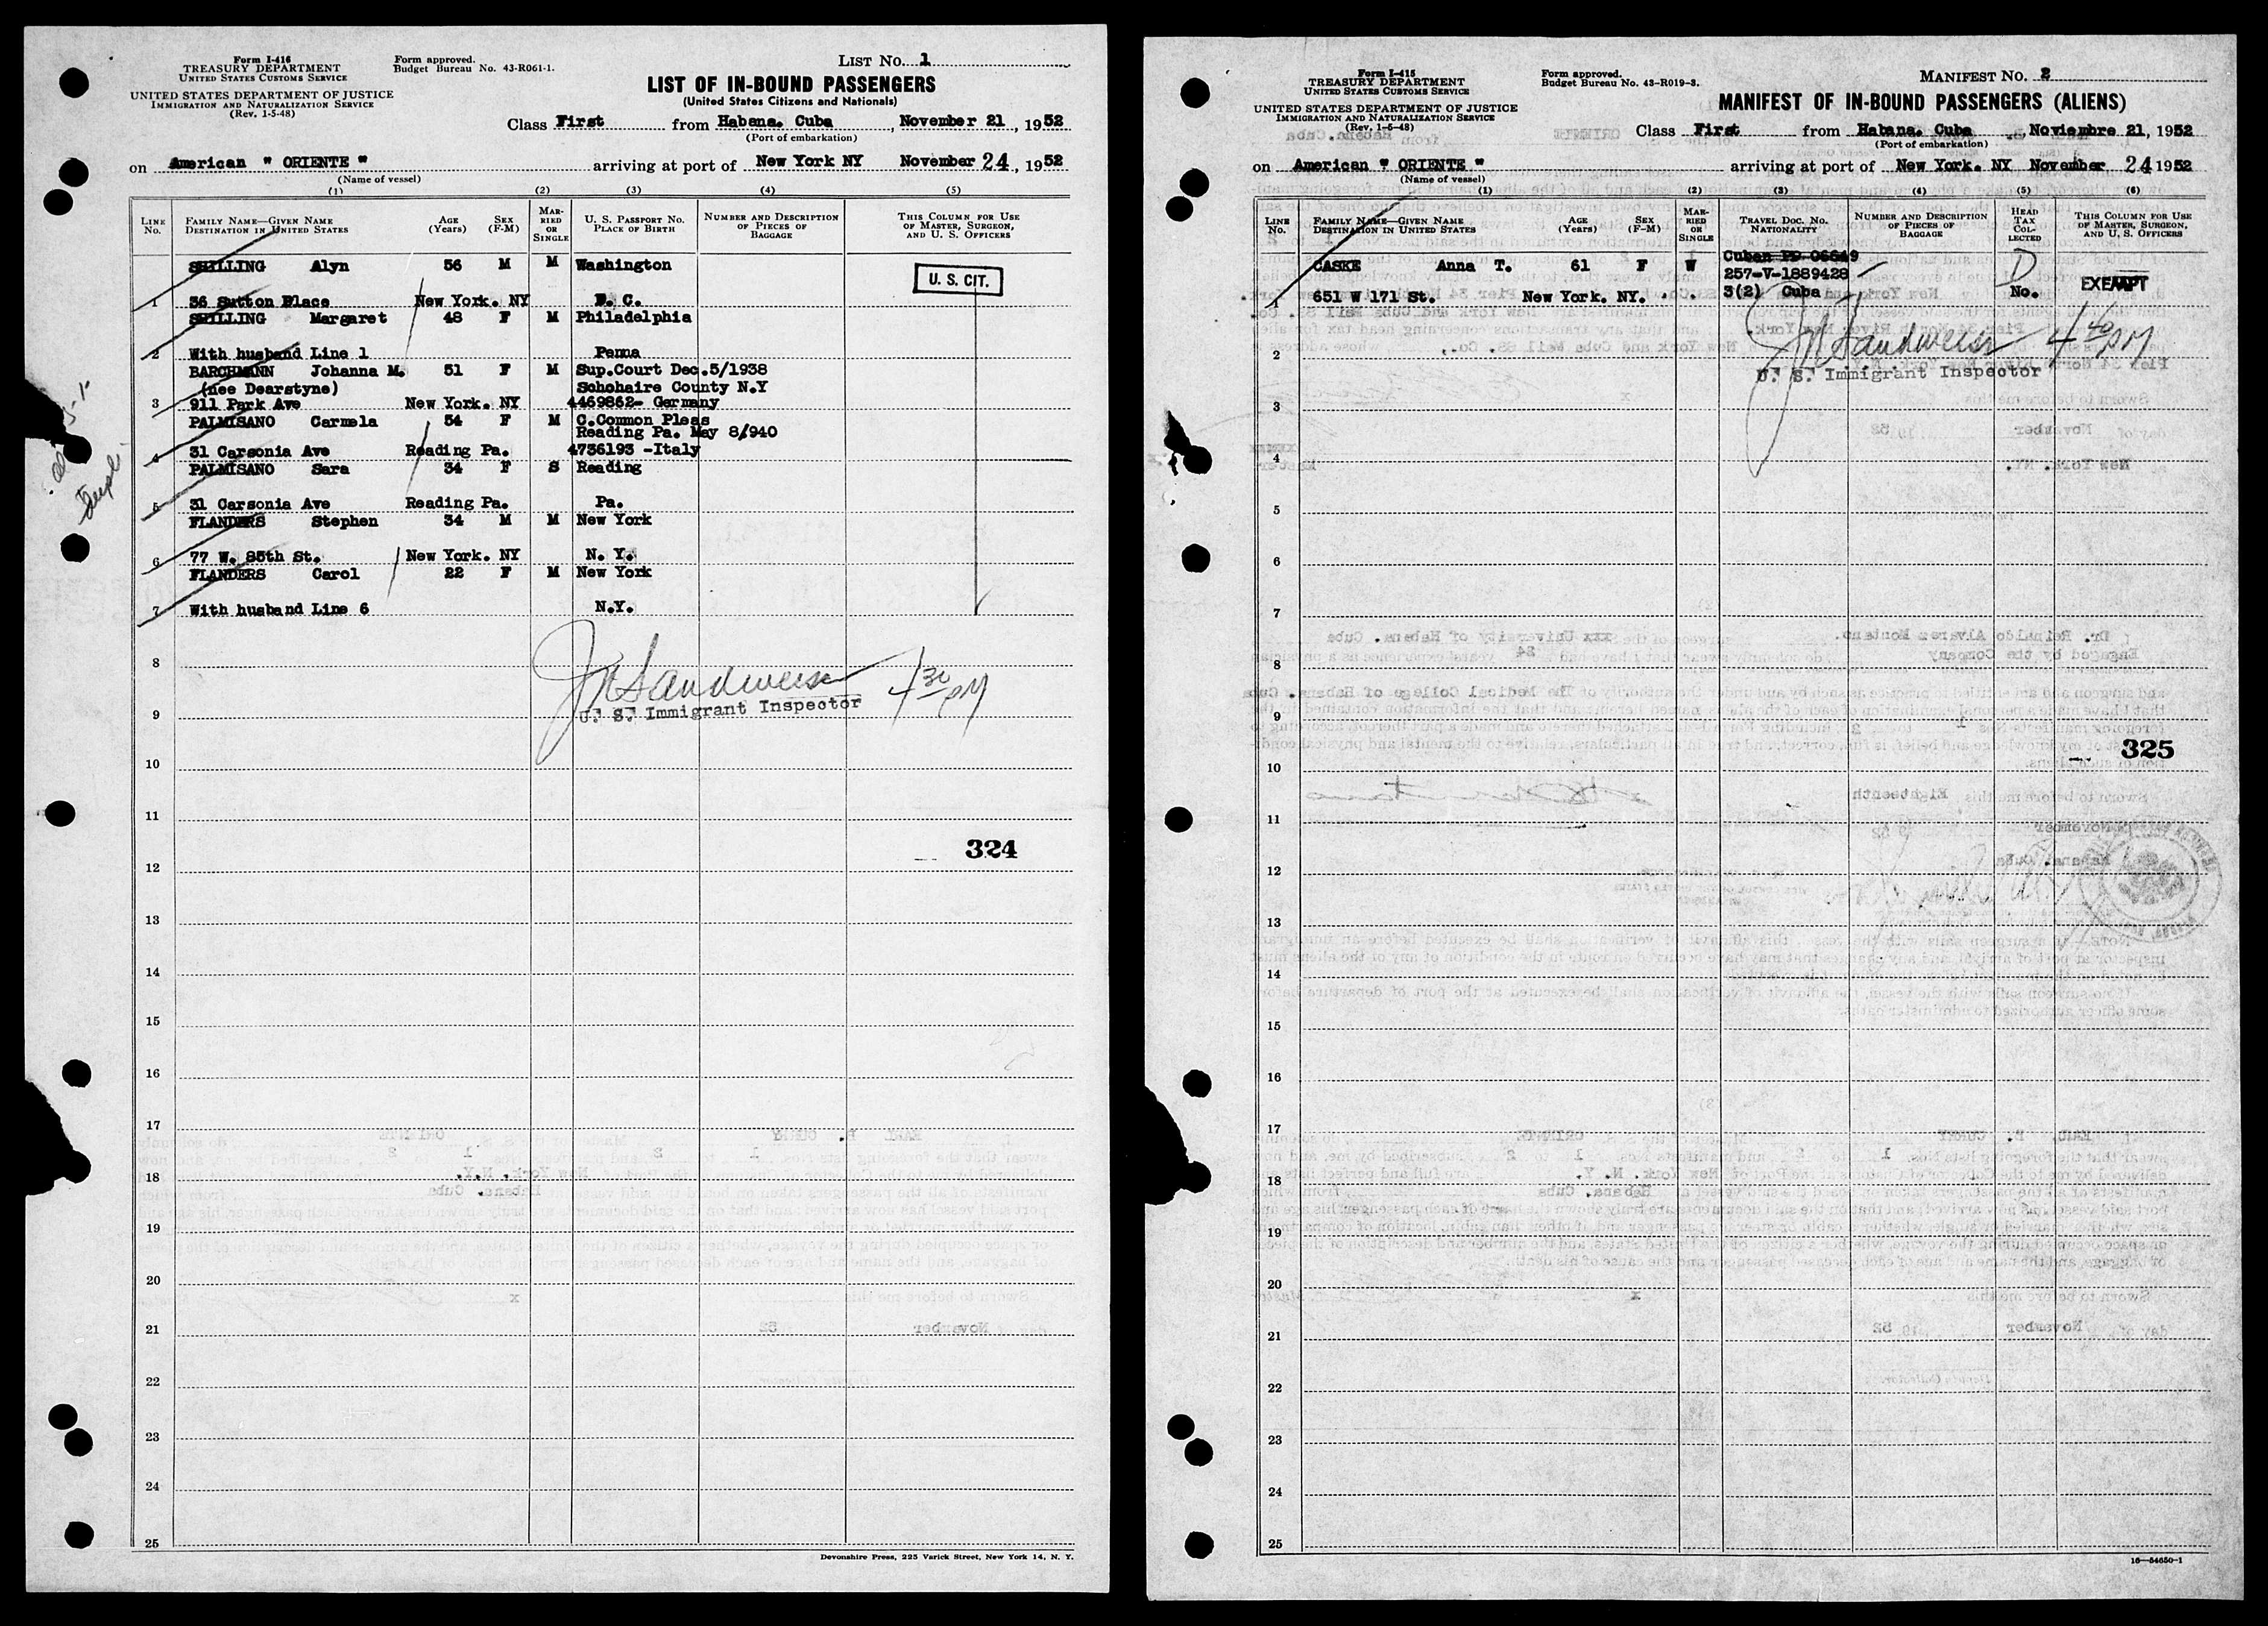 Form I-416
TREASURY DEPARTMENT
UNITED STATES CUSTOMS SERVICE
UNITED STATES DEPARTMENT OF JUSTICE
IMMIGRATION AND NATURALIZATION SERVICE
(Rev. 1-5-48)
Form approved.
Budget Bureau No. 43-R061-1.
LIST NO. 1
LIST OF IN-BOUND PASSENGERS
(United States Citizens and Nationals)
Class First from Habana. Cuba, November 21, 1952
(Port of embarkation)
on American " ORIENTE " arriving at port of New York NY November 24, 1952
(Name of vessel)
(1) (2) (3) (4) (5)
LINE No. FAMILY NAME—GIVEN NAME DESTINATION IN UNITED STATES AGE (Years) SEX (F-M) MARRIED OR SINGLE U. S. PASSPORT NO. PLACE OF BIRTH NUMBER AND DESCRIPTION OF PIECES OF BAGGAGE THIS COLUMN FOR USE OF MASTER, SURGEON, AND U. S. OFFICERS
SHILLING Alyn 56 M M Washington
U. S. CIT.
1 36 Sutton Place New York. NY D. C.
SHILLING Margaret 48 F M Philadelphia
2 With husband Line 1 Penna
BARCHMANN Johanna M. 51 F M Sup.Court Dec.5/1938
(nee Dearstyne) Schohaire County N.Y
3 911 Park Ave New York. NY 4469862- Germany
PALMISANO Carmela 54 F M C.Common Pleas
Reading Pa. May 8/940
4 31 Carsonia Ave Reading Pa. 4736193 -Italy
PALMISANO Sara 34 F S Reading
5 31 Carsonia Ave Reading Pa. Pa.
FLANDERS Stephen 34 M M New York
6 77 W. 85th St. New York. NY N. Y.
FLANDERS Carol 22 F M New York
7 With husband Line 6 N.Y.
8
JM Sandweiss 4 30 PM
U. S. Immigrant Inspector
9
10
11
324
12
13
14
15
16
17
18
19
20
21
22
23
24
25
Devonshire Press, 225 Varick Street, New York 14, N. Y.
Form I-415
TREASURY DEPARTMENT
UNITED STATES CUSTOMS SERVICE
UNITED STATES DEPARTMENT OF JUSTICE
IMMIGRATION AND NATURALIZATION SERVICE
(Rev. 1-5-48)
Form approved.
Budget Bureau No. 43-R019-3.
MANIFEST NO. 2
MANIFEST OF IN-BOUND PASSENGERS (ALIENS)
Class First from Habana. Cuba, Noviembre 21, 1952
(Port of embarkation)
on American " ORIENTE " arriving at port of New York. NY November 24 1952
(Name of vessel)
(1) (2) (3) (4) (5) (6)
LINE No. FAMILY NAME—GIVEN NAME DESTINATION IN UNITED STATES AGE (Years) SEX (F-M) MARRIED OR SINGLE TRAVEL DOC. NO. NATIONALITY NUMBER AND DESCRIPTION OF PIECES OF BAGGAGE HEAD TAX COLLECTED THIS COLUMN FOR USE OF MASTER, SURGEON, AND U. S. OFFICERS
Cuban PP 06649
CASKE Anna T. 61 F W 257-V-1889428 D
1 651 W 171 St. New York. NY. 3(2) Cuba No. EXEMPT
2
JM Sandweiss 4 40 PM
U. S. Immigrant Inspector
3
4
5
6
7
8
9
325
10
11
12
13
14
15
16
17
18
19
20
21
22
23
24
25
16—54650-1